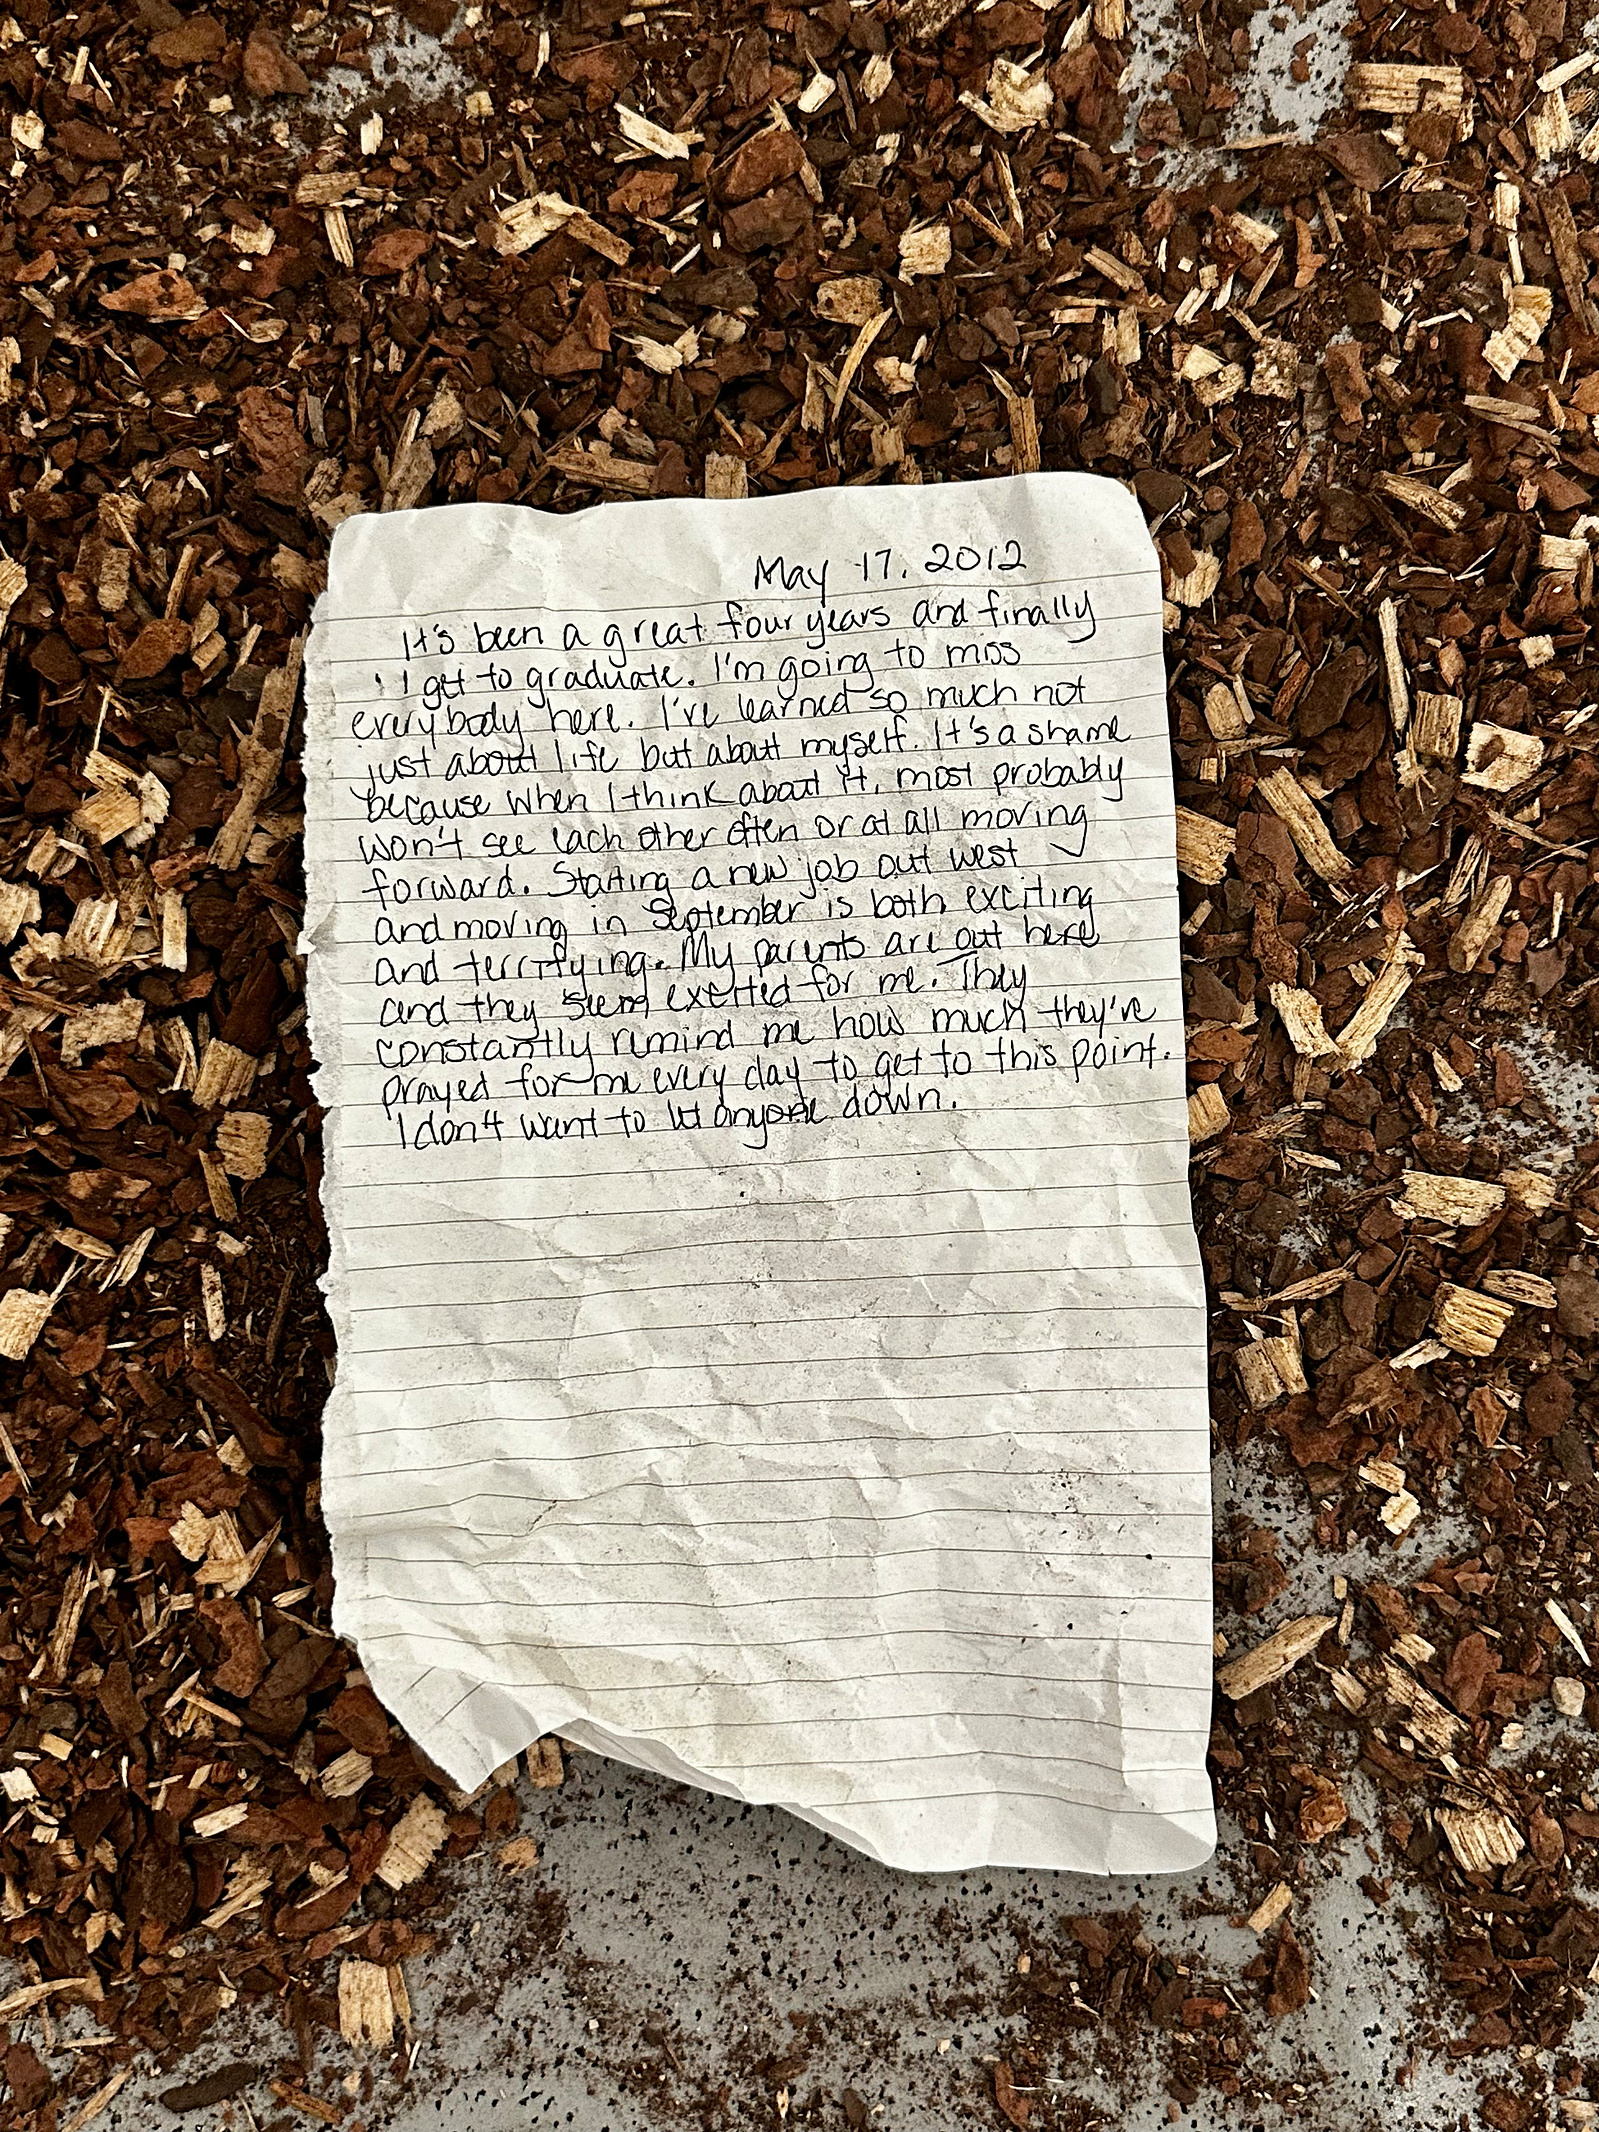 May 17, 2012
It's been a great four years and finally
I get to graduate. I'm going to miss
everybody here. I've learned so much not
just about life but about myself. It's a shame
because when I think about it, most probably
won't see each other often or at all moving
forward. Starting a new job out west
and moving in September is both exciting
and terrifying. My parents are out here
and they seem excited for me. They
constantly remind me how much they're
prayed for me every day to get to this point.
I don't want to let anyone down.